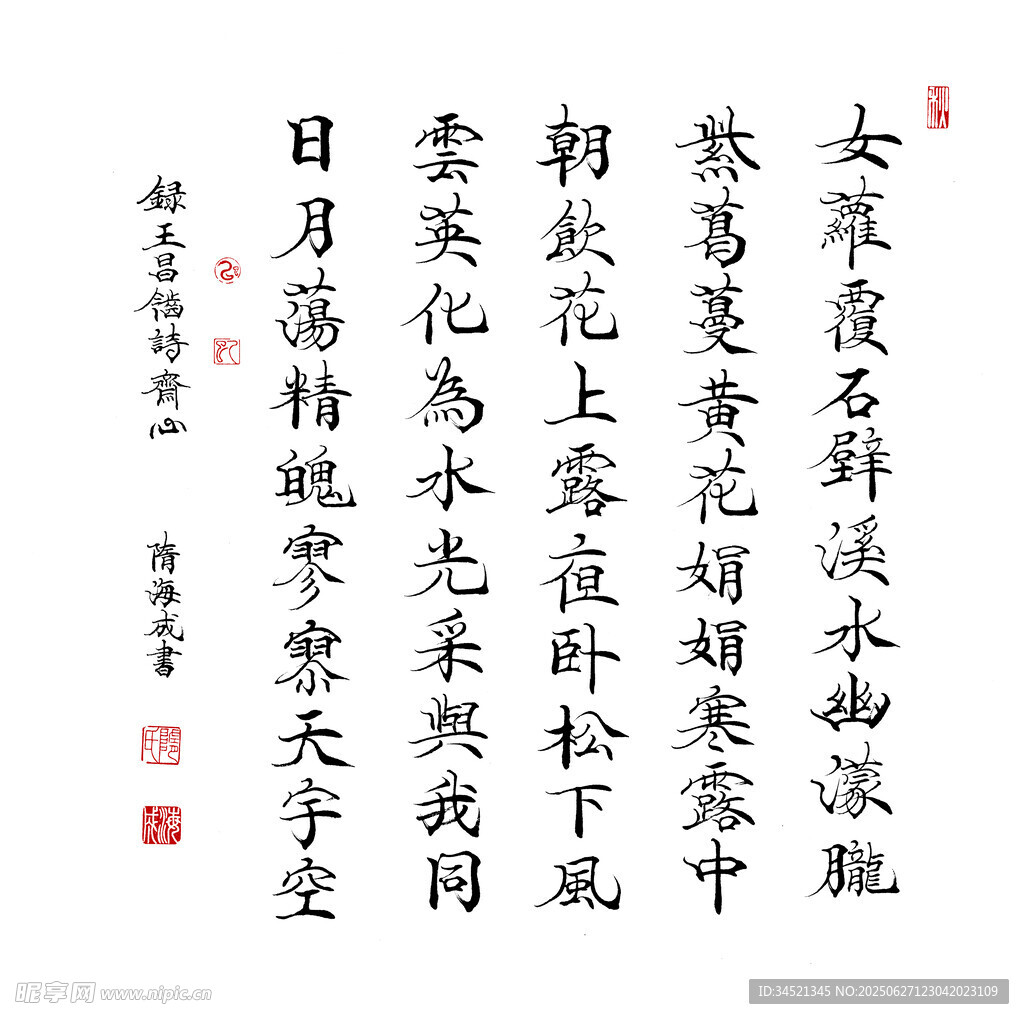 女蘿覆石壁溪水幽濛朧
紫葛蔓黄花娟娟寒露中
朝飲花上露夜卧松下風
雲英化為水光采與我同
日月蕩精魄寥寥天宇空
録王昌齡詩齋心 隋海成書
隋氏
海成
昵享网 www.nipic.cn
ID:34521345 NO:20250627123042023109